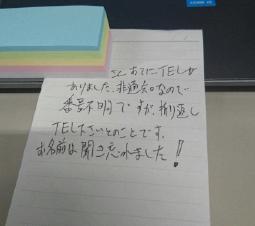 あてにTELが
ありました。非通知なので
番号不明ですが、折り返し
TEL下さいとのことです。
お名前は聞き忘れました!